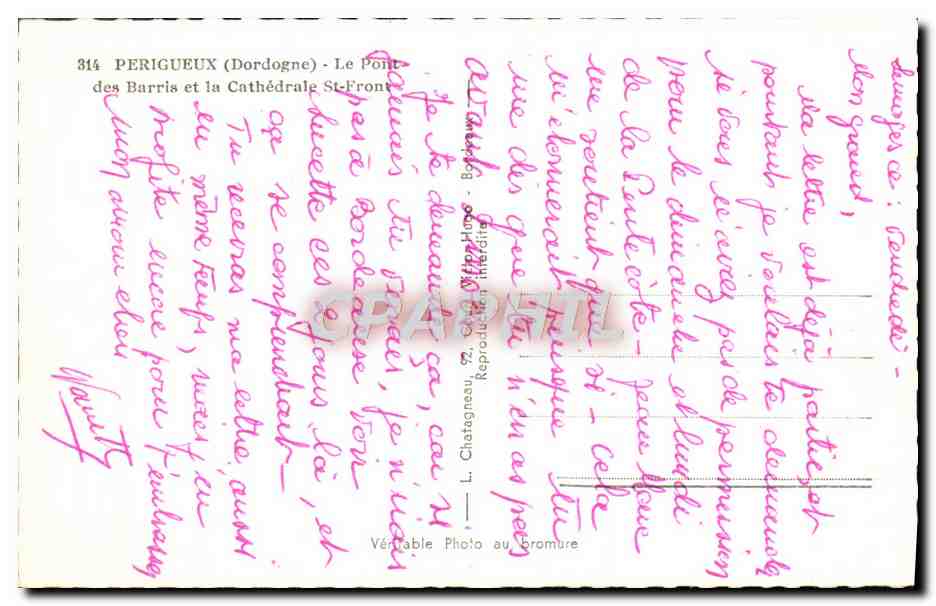 314 PERIGUEUX (Dordogne) - Le Pont
des Barris et la Cathédrale St-Front
L. Chatagneau, 92, Cours Victor-Hugo - Bordeaux
Reproduction interdite
Véritable Photo au bromure
CPAPHIL
Limoges ce : vendredi -
Mon grand,
Ma lettre est déjà partie, et
pourtant je voulais te demander
si vous n'aviez pas de permission
pour le dimanche et lundi
de la Pentecôte - Jean Louc
me soutient que si - cela
m'étonnerait puisque tu
me dis que tu n'en as pas
avant
Je te demande ça, car si
jamais tu venais, je n'irais
pas à Bordeaux voir
Lucette ces jours là, et
ça se comprendrait -
Tu recevras ma lettre aussi
en même temps, mais j'en
profite encore pour t'embrasser
mon amour chou